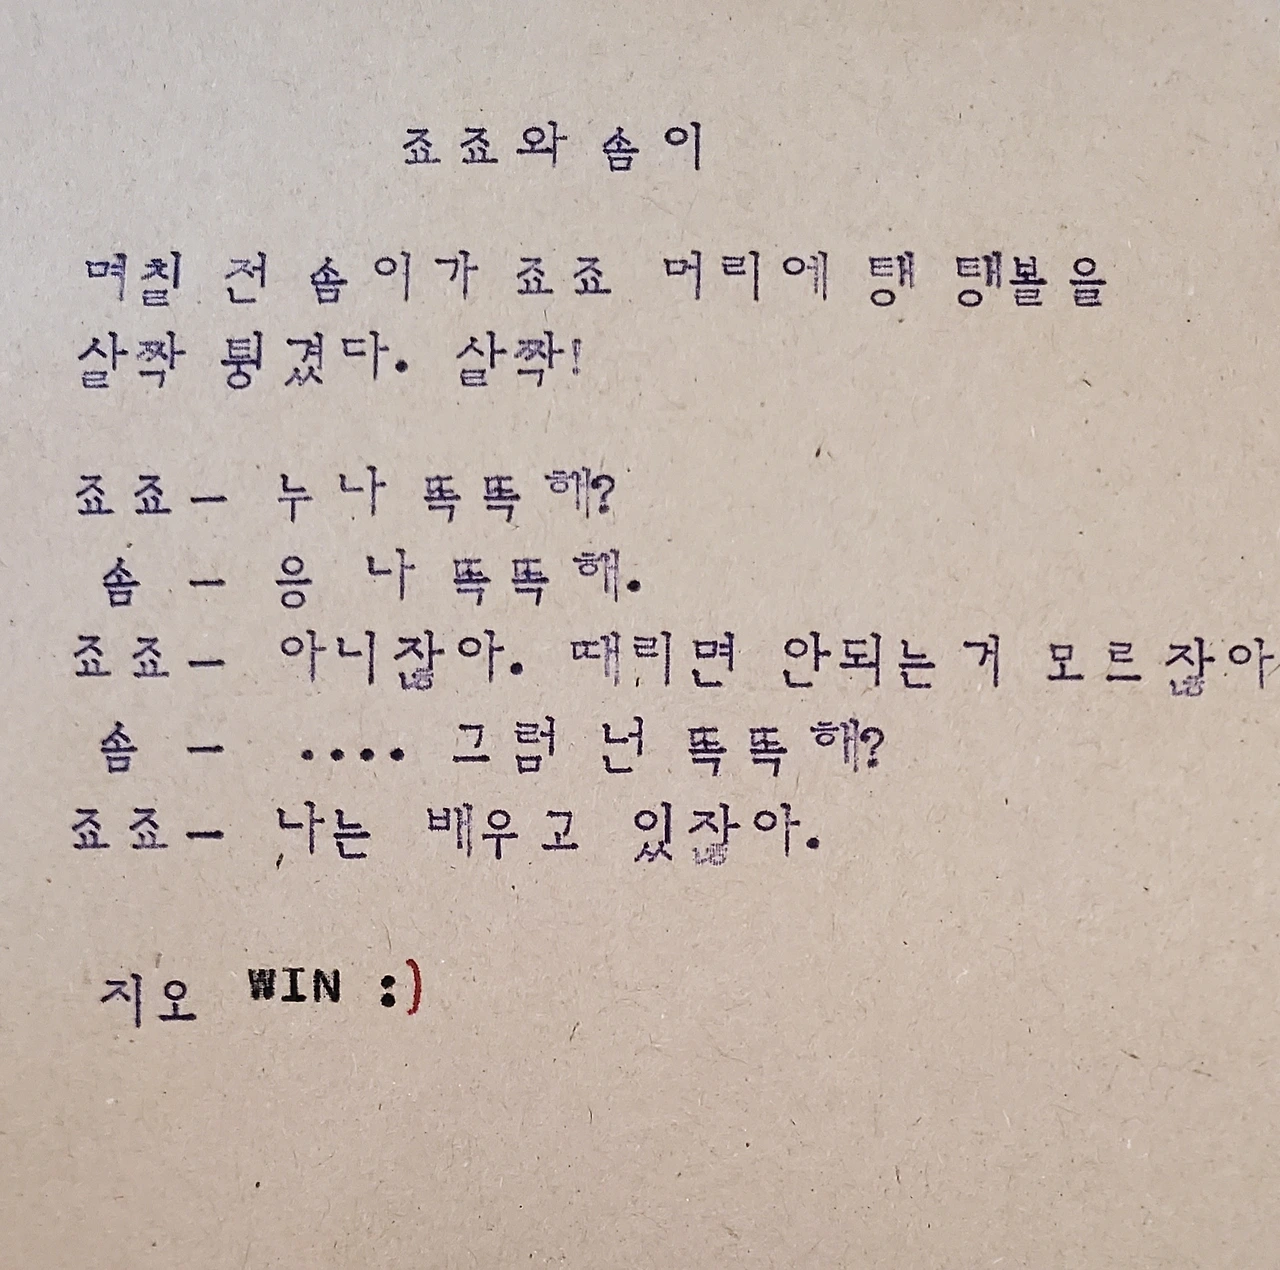 죠죠와 솜이
며칠 전 솜이가 죠죠 머리에 탱탱볼을
살짝 튕겼다. 살짝!
죠죠- 누나 똑똑해?
솜 - 응 나 똑똑해.
죠죠- 아니잖아. 때리면 안되는거 모르잖아
솜 - .... 그럼 넌 똑똑해?
죠죠- 나는 배우고 있잖아.
지오 WIN :)